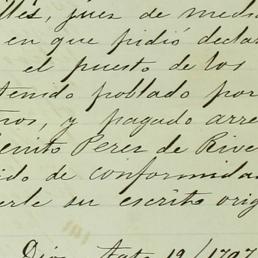 lles, juez de medi
en que pidió declar
el puesto de los
tenido poblado por
ños, y pagado arre
Benito Perez de Rive
ido de conformida
erle su escrito orig
Dios, Agto 19/1797